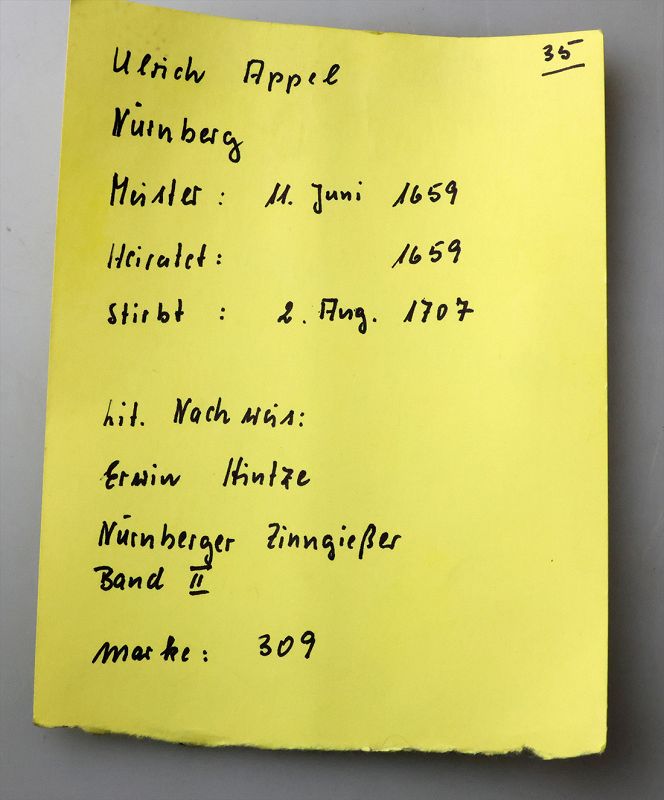 35
Ulrich Appel
Nürnberg
Meister: 11. Juni 1659
Heiratet: 1659
Stirbt: 2. Aug. 1707
Lit. Nachweis:
Erwin Hintze
Nürnberger Zinngießer
Band II
Marke: 309